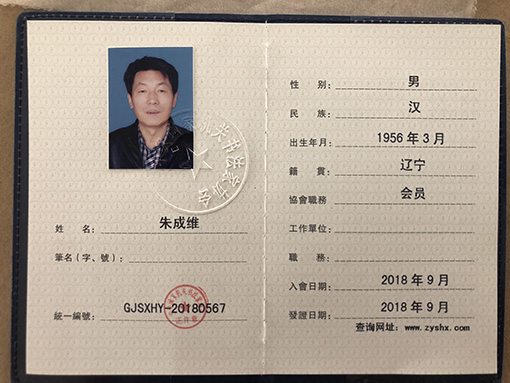 姓 名: 朱成维
筆名(字、號):
統一編號: GJSXHY-20180567
性 别: 男
民 族: 汉
出生年月: 1956年3月
籍 貫: 辽宁
協會職務 会员
工作單位:
職 務:
入會日期: 2018年9月
發證日期: 2018年9月
查询网址: www.zyshx.com